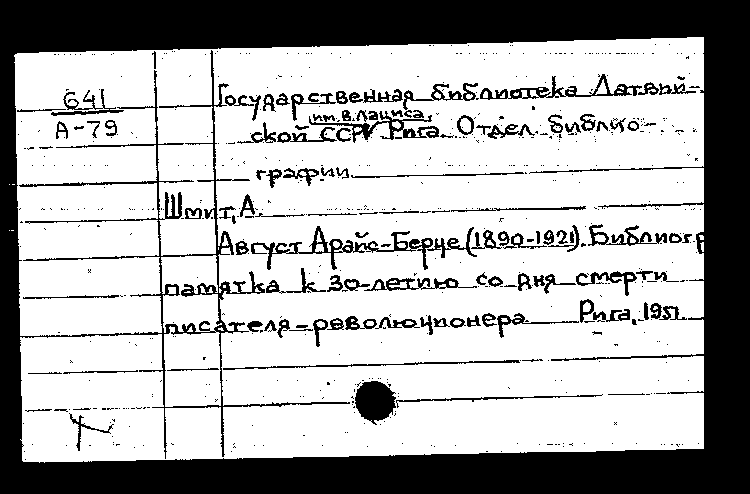 641
А-79
Государственная библиотека Латвий-
ской ССР им. В. Лациса, Рига. Отдел библио-
графии
Шмит, А.
Август Арайс-Берце (1890-1921). Библиогр
памятка к 30-летию со дня смерти
писателя-революционера Рига, 1951